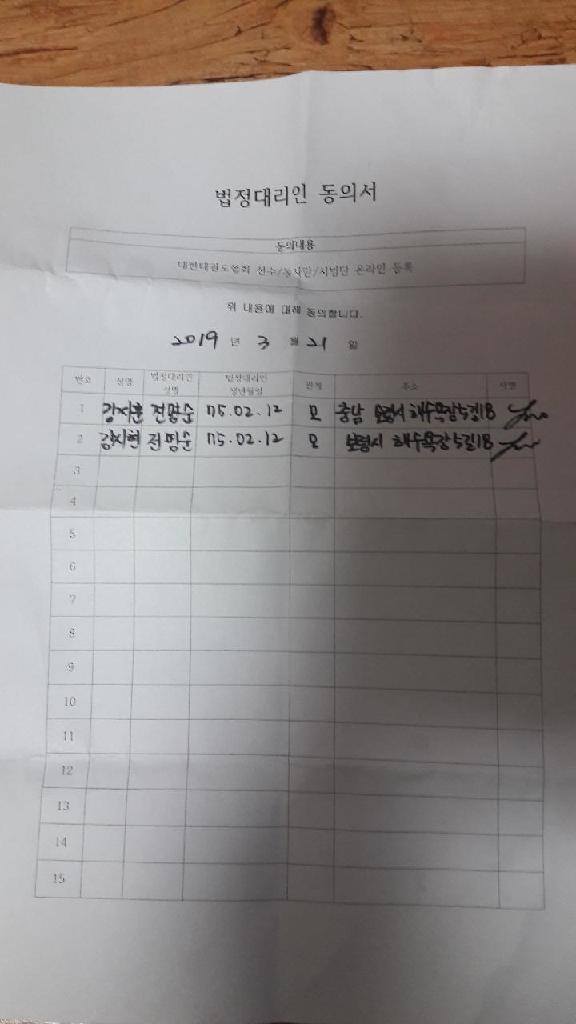 법정대리인 동의서
동의내용
대한태권도협회 선수/동시단/시범단 온라인 등록
위 내용에 대해 동의합니다.
2019 년 3 월 21 일
번호 성명 법정대리인 성명 법정대리인 생년월일 관계 주소 서명
1 강지훈 전명순 75.02.12 모 충남 보령시 해수욕장 5길 18
2 강지현 전명순 75.02.12 모 보령시 해수욕장 5길 18
3
4
5
6
7
8
9
10
11
12
13
14
15